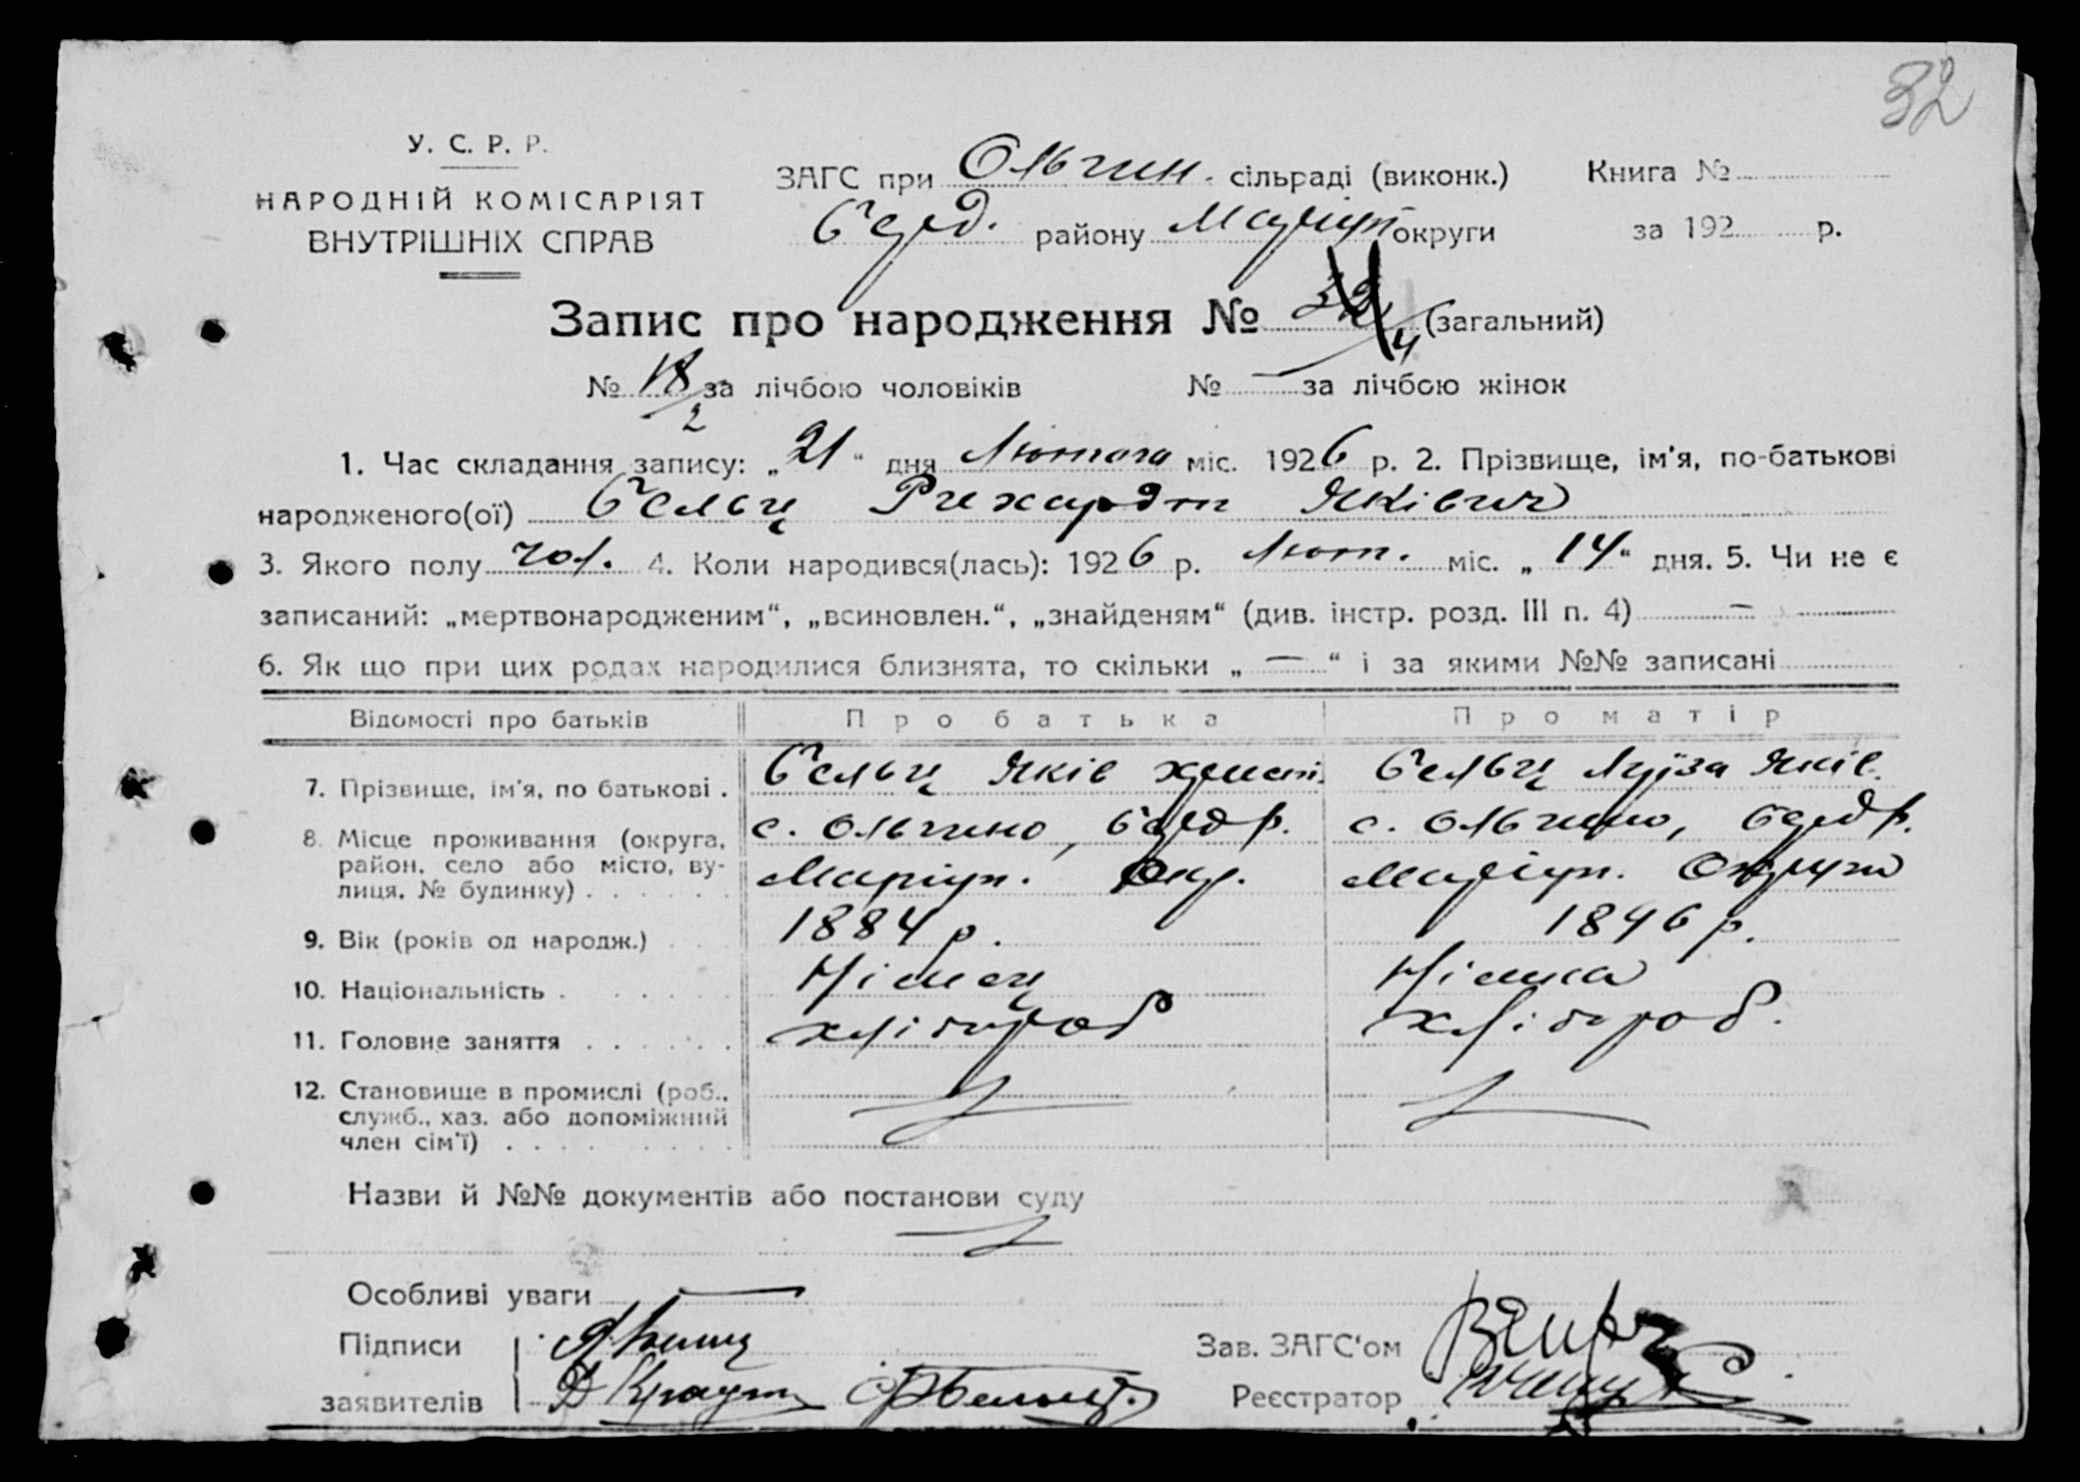 32
У. С. Р. Р.
НАРОДНІЙ КОМІСАРІЯТ
ВНУТРІШНІХ СПРАВ
ЗАГС при Ольгин. сільраді (виконк.)
Книга №
Будд. району Маріуп округи
за 192 р.
Запис про народження № 32/4 (загальний)
№ 18/2 за лічбою чоловіків № — за лічбою жінок
1. Час складання запису: „21“ дня Лютого міс. 1926 р. 2. Прізвище, ім'я, по-батькові
народженого(ої) Бельц Рихардт Яківич
3. Якого полу чол. 4. Коли народився(лась): 1926 р. Лют. міс. „14“ дня. 5. Чи не є
записаний: „мертвонародженим“, „всиновлен.“, „знайденям“ (див. інстр. розд. III п. 4) —
6. Як що при цих родах народилися близнята, то скільки „—“ і за якими №№ записані
Відомості про батьків Про батька Про матір
7. Прізвище, ім'я, по батькові . Бельц Яків Христ. Бельц Луїза Яків.
8. Місце проживання (округа,
район, село або місто, ву-
лиця, № будинку) . . . . . .
с. Ольгино, р. с. Ольгино, р.
Маріуп. Окр. Маріуп. Округи
9. Вік (років од народж.) . . 1884 р. 1896 р.
10. Національність . . . . . . Німец Німка
11. Головне заняття . . . . . . хлібороб хлібороб.
12. Становище в промислі (роб.,
служб., хаз. або допоміжний
член сім'ї) . . . . . . . .
Назви й №№ документів або постанови суду
Особливі уваги —
Підписи
заявителів
Я Бельц
Д Краут
Зав. ЗАГС'ом
Реєстратор